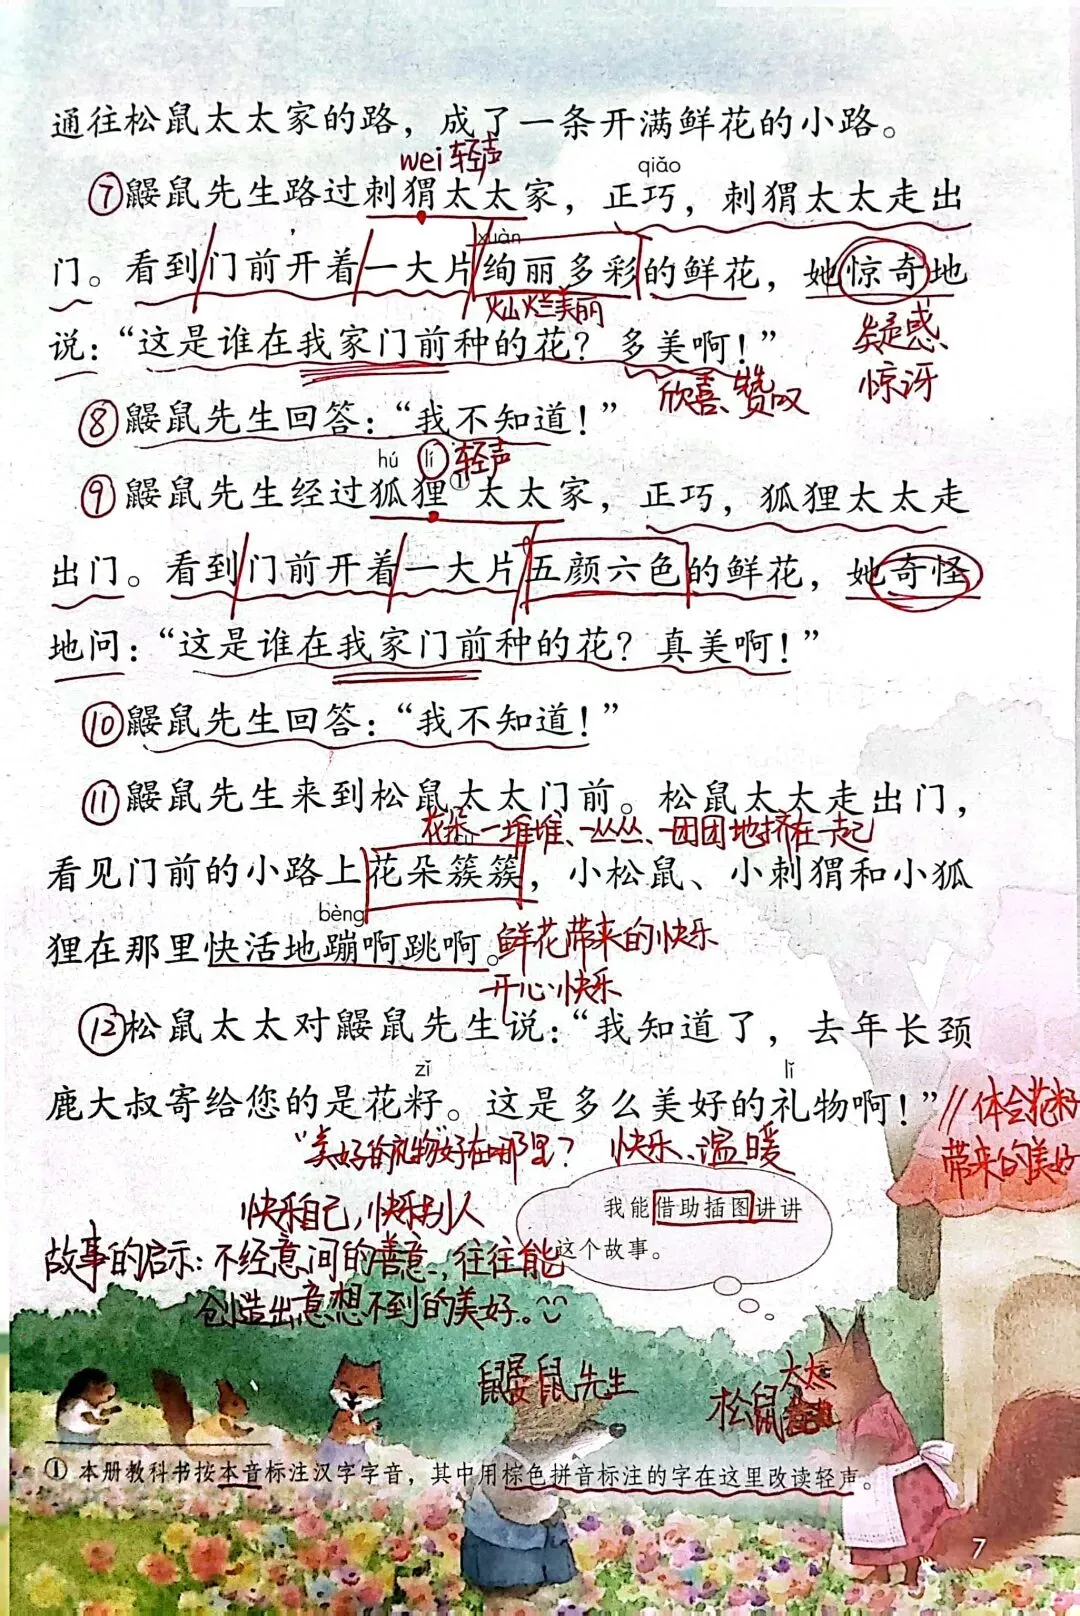 通往松鼠太太家的路，成了一条开满鲜花的小路。
wei 轻声
qiǎo
⑦鼹鼠先生路过刺猬太太家，正巧，刺猬太太走出
xuàn
门。看到门前开着一大片绚丽多彩的鲜花，她惊奇地
灿烂美丽
说：“这是谁在我家门前种的花？多美啊！”
疑惑、
惊讶
欣喜、赞叹
⑧鼹鼠先生回答：“我不知道！”
hú lí 轻声
⑨鼹鼠先生经过狐狸①太太家，正巧，狐狸太太走
出门。看到门前开着一大片五颜六色的鲜花，她奇怪
地问：“这是谁在我家门前种的花？真美啊！”
⑩鼹鼠先生回答：“我不知道！”
⑪鼹鼠先生来到松鼠太太门前。松鼠太太走出门，
花朵一堆堆、一丛丛、一团团地挤在一起
看见门前的小路上花朵簇簇，小松鼠、小刺猬和小狐
bèng
狸在那里快活地蹦啊跳啊。
鲜花带来的快乐
开心、快乐
⑫松鼠太太对鼹鼠先生说：“我知道了，去年长颈
zǐ
lǐ
鹿大叔寄给您的是花籽。这是多么美好的礼物啊！”
//体会花籽
带来的美好
“美好的礼物”好在哪里？ 快乐、温暖
快乐自己，快乐别人
我能借助插图讲讲
这个故事。
故事的启示：不经意间的善意，往往能
创造出意想不到的美好。
鼹鼠先生
松鼠太太
① 本册教科书按本音标注汉字字音，其中用棕色拼音标注的字在这里改读轻声。
7